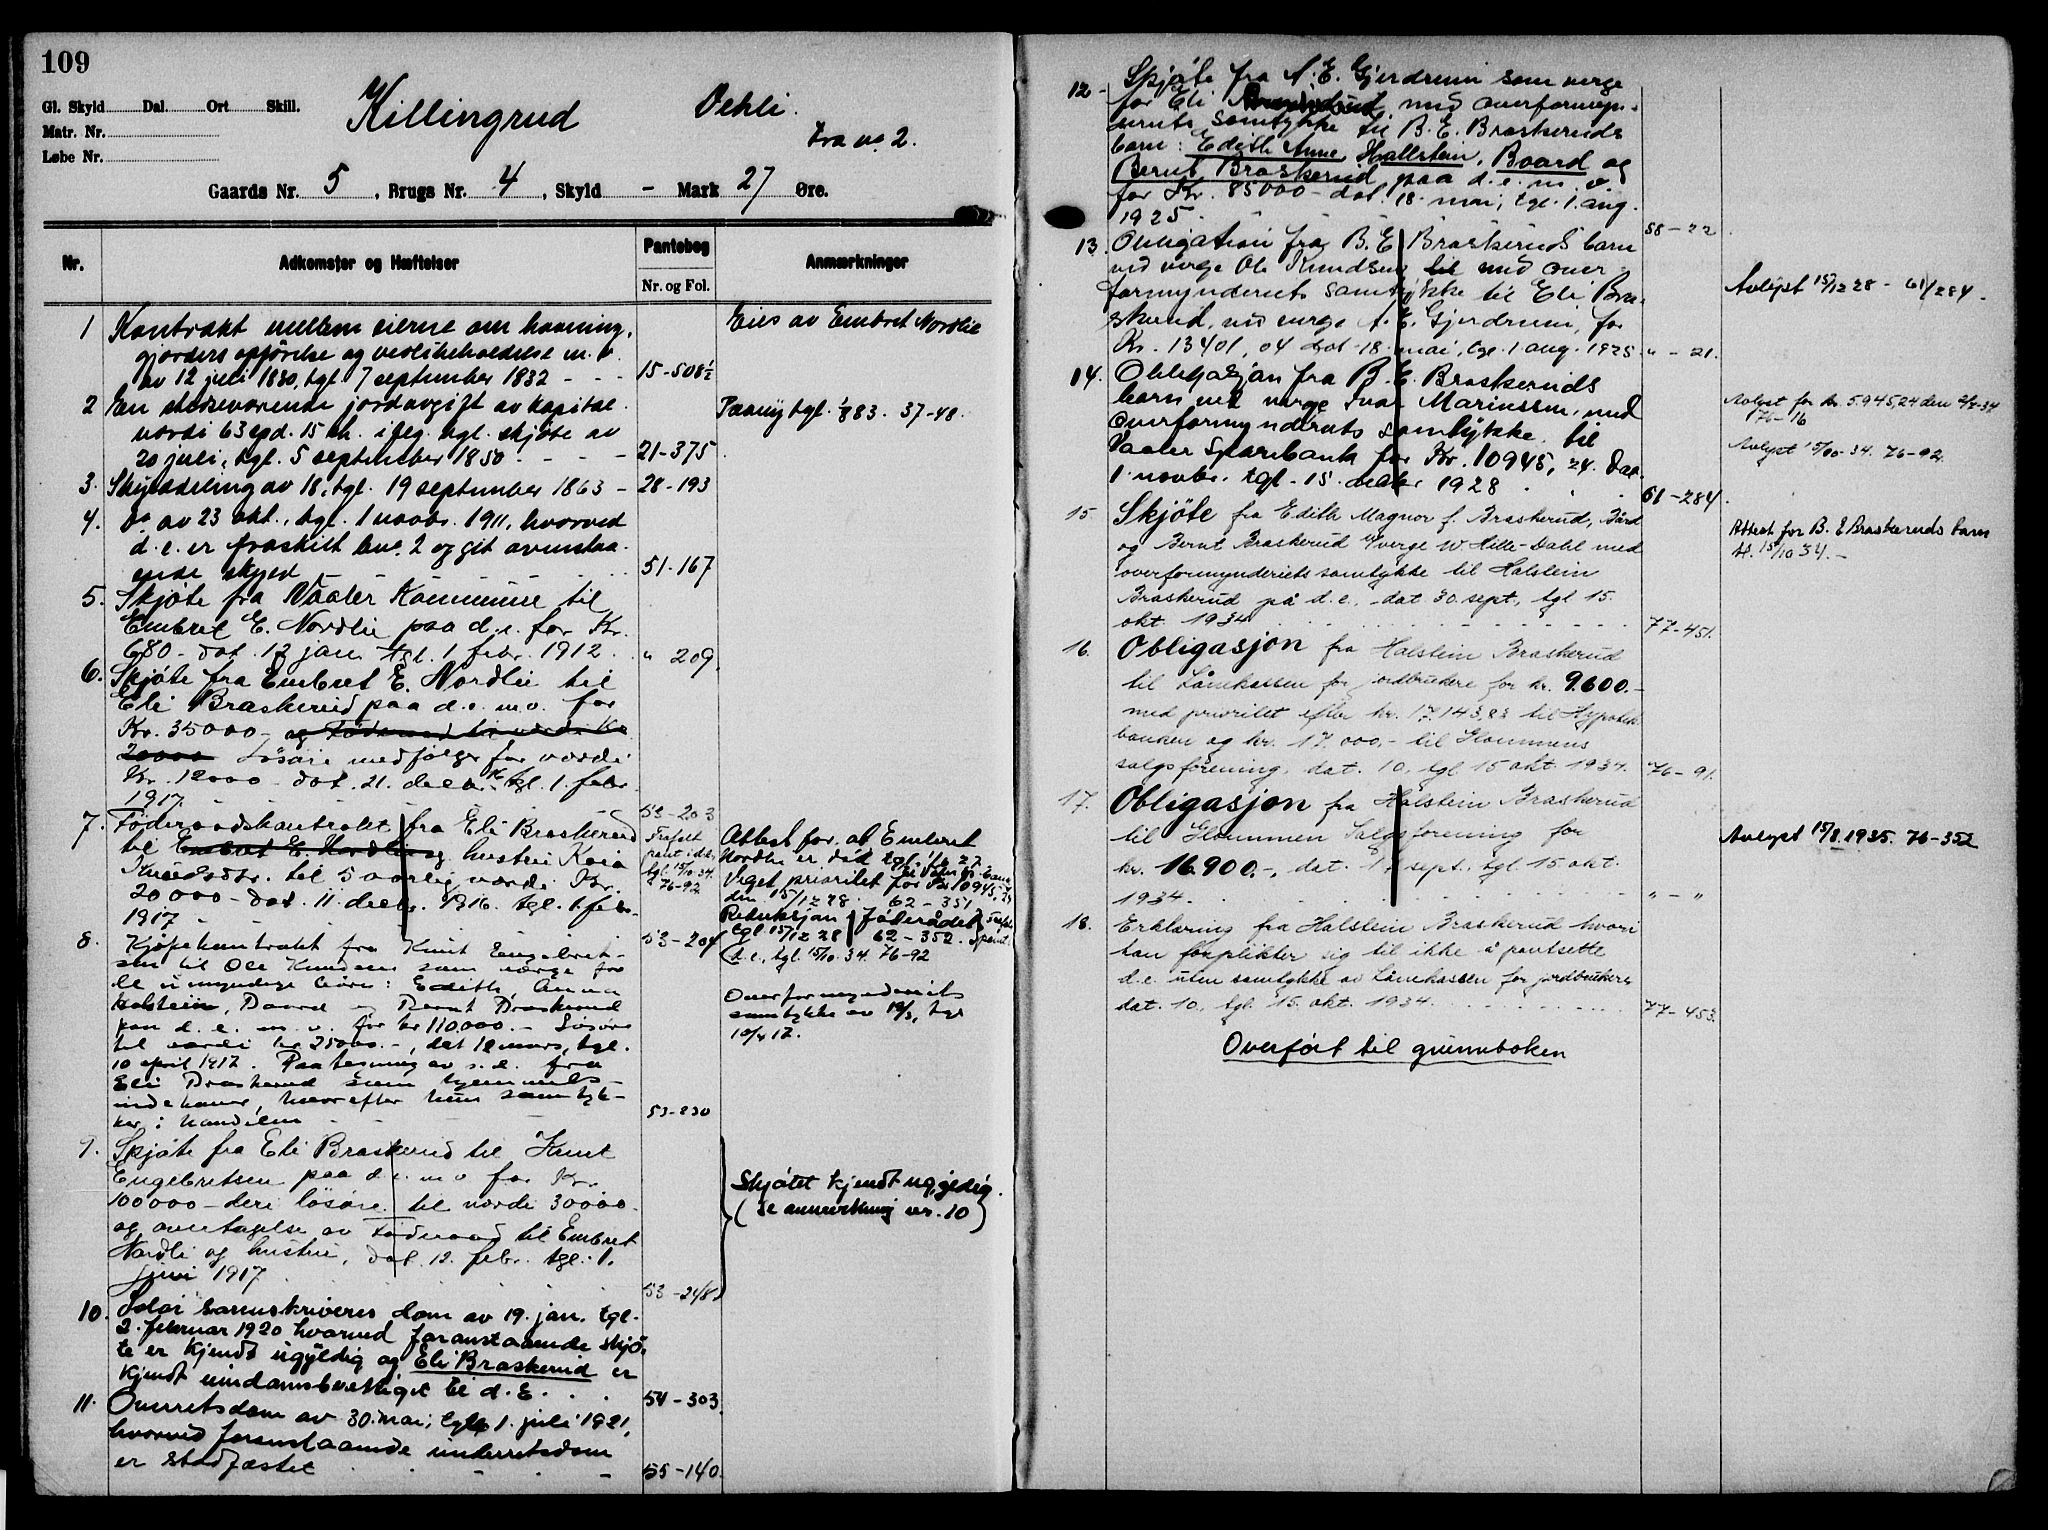 109
Gl. Skyld Dal. Ort Skill.
Matr. Nr.
Løbe Nr.
Killingrud
Oehli.
fra no. 2.
Gaards Nr. 5, Brugs Nr. 4, Skyld - Mark 27 Øre.
Nr.
Adkomster og Hæftelser
Pantebog
Nr. og Fol.
Anmærkninger
1 Kontrakt mellem eierne om havning,
gjærders opførelse og vedlikeholdelse m. v.
av 12 juli 1830, tgl. 7 september 1832 - - - 15-508½
Eies av Embret Nordlie
2 En stedsevarende jordavgift av kapital
værdi 63 spd. 15 sk. iflg. tgl. skjøte av
20 juli, tgl. 5 september 1850 - - - 21-375
Paany tgl. 1883. 37-48.
3. Skylddeling av 18, tgl. 19 september 1863 - 28-193
4. Do av 23 okt., tgl. 1 novbr. 1911, hvorved
d. e. er fraskilt bno. 2 og git ovenstaa-
ende skyld - - - 51-167
5. Skjøte fra Vaaler Kommune til
Embret E. Nordlie paa d. e. for Kr.
680 - dat. 12 jan. tgl. 1 febr. 1912. " 209.
6. Skjøte fra Embret E. Nordlie til
Eli Braskerud paa d. e. m. v. for
Kr. 35000 - og Føderaad til værdi Kr.
20000 Løsøre medfølger for værdi
Kr. 12000 - dat. 21. decbr. 16 tgl. 1. febr.
1917 - - - 53-203
7. Føderaadskontrakt fra Eli Braskerud
til Embret E. Nordlie og hustru Kaia
Knudsdtr. til 5 aarlig værdi Kr.
20000 - dat. 11. decbr. 1916. tgl. 1. febr.
1917 - - 53-204
Frafalt
pant i d.e.
tgl. 15/10-34.
76-92
Attest for at Embret
Nordlie er død tgl.
Veget prioritet for Kr. 10945,24
den 15/12 28. 62-351
Reduksjon i føderådet
tgl 15/12 28 62-352.
d. e., tgl. 15/10. 34. 76-92
8. Kjøpekontrakt fra Knut Engebret-
sen til Ole Knudsen som værge for
de umyndige barn: Edith, Anna
Halstein, Baard og Bernt Braskerud
paa d. e. m. v. for kr 110,000.- Løsøre
til værdi kr 25000.-, dat 12 mars, tgl.
10 april 1917. Paategning av s. d. fra
Eli Braskerud som hjemmels-
indehaver, hvorefter hun samtyk-
ker i handelen - - 53-230
Overformynderiets
samtykke av 19/3, tgl
10/4 17.
9. Skjøte fra Eli Braskerud til Knut
Engebretsen paa d. e. m v for Kr.
100000 - deri løsøre til værdi 30000
og overtagelse av Føderaad til Embret
Nordli og hustru, dat. 12. febr. tgl. 1.
juni 1917 53-248
Skjøtet kjendt ugyldig.
(se anmerkning nr. 10)
10. Solør sorenskriveres dom av 19. jan. tgl.
2. februar 1920 hvorved foranstaaende skjø-
te er kjendt ugyldig og Eli Braskerud er
kjendt eiendomsberettiget til d. E. . . 54-303
11. Overretsdom av 30. mai, tgl. 1. juli 1921,
hvorved foranstaaende underretsdom
er stadfæstet - - - 55-140.
12. Skjøte fra A. E. Gjerdrum som verge
for Eli Braskerud, med overformyn-
deriets samtykke til B. E. Braskeruds
barn: Edith Anne, Hallstein, Baard og
Bernt Braskerud paa d. e. m. v.
for Kr. 85000 - dat. 18. mai, tgl. 1. aug.
1925. 58-22.
13. Obligation fra B. E. Braskeruds barn
ved verge Ole Knudsen til med over-
formynderiets samtykke til Eli Bra-
skerud, ved verge A. E. Gjerdrum, for
Kr. 13401,04 dat 18. mai, tgl. 1 aug. 1925. " - 21.
Avlyst 15/12 28 - 61/284.
14. Obligasjon fra B. E. Braskeruds
barn ved verge Ivar Marinssen, med
overformynderiets samtykke til
Vaaler Sparebank for Kr. 10945,24. Dat.
1. novbr. tgl. 15. decbr. 1928 . . . 61-284.
Avlyst for kr. 5.945,24 den 34
76-16
Avlyst 15/10-34. 76-92.
15. Skjøte fra Edith Magnor f. Braskerud, Bård
og Bernt Braskerud v/verge W. Hille-Dahl med
overformynderiets samtykke til Halstein
Braskerud på d. e., dat 30. sept., tgl 15.
okt. 1934 - - - 77-451.
Attest for B. E. Braskeruds barn
tl. 15/10 34. -
16. Obligasjon fra Halstein Braskerud
til Lånekassen for jordbrukere for kr. 9.600.-
med prioritet efter kr. 17.143,83 til Hypotek-
banken og kr. 17.000,- til Glommens
salgsforening, dat. 10, tgl 15 okt. 1934. 76-91.
17. Obligasjon fra Halstein Braskerud
til Glommen Salgsforening for
kr. 16.900.-, dat. sept., tgl 15 okt.
1934. - - - " - "
Avlyst 15/8 1935. 76-352
18. Erklæring fra Halstein Braskerud hvori
han forplikter sig til ikke å pantsette
d. e. uten samtykke av Lånekassen for jordbrukere
dat. 10., tgl. 15. okt. 1934. - - - 77-453.
Overført til grunnboken